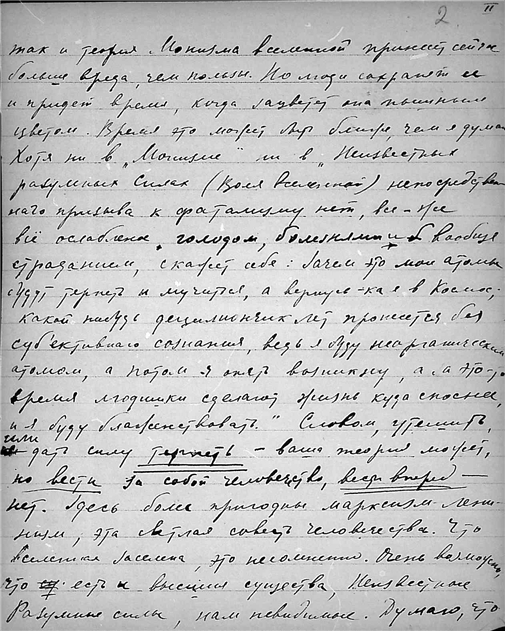 2 II
так и теория Монизма вселенной принесет сейчас
больше вреда, чем пользы. Но люди сохранят ее
и придет время, когда зацветет она пышным
цветом. Время это может быть ближе чем я дума
Хотя ни в „Монизме" ни в „Неизвестных
разумных силах (Воля вселенной) непосредствен
наго призыва к фатализму нет, все-же
всё ослабленн голодом, болезнями и вообще
страданием, скажет себе: Зачем это мои атомы
будут терпеть и мучится, а вернусь-ка я в Космос,
какой нибудь дециллиончик лет пронесется без
субъективнаго сознания, ведь я буду неорганическим
атомом, а потом я опять возникну, а за это-то
время людишки сделают жизнь куда сноснее,
и я буду блаженствовать." Словом, утешить,
или дать силу терпеть – ваша теория может,
но вести за собой человечество, вести вперед –
нет. Здесь более пригодны марксизм-лени-
низм, эта светлая совесть человечества. Что
вселенная заселена, это несомненно. Очень возможно,
что есть и высшия существа, Неизвестные
Разумные силы, нам невидимые. Думаю, что